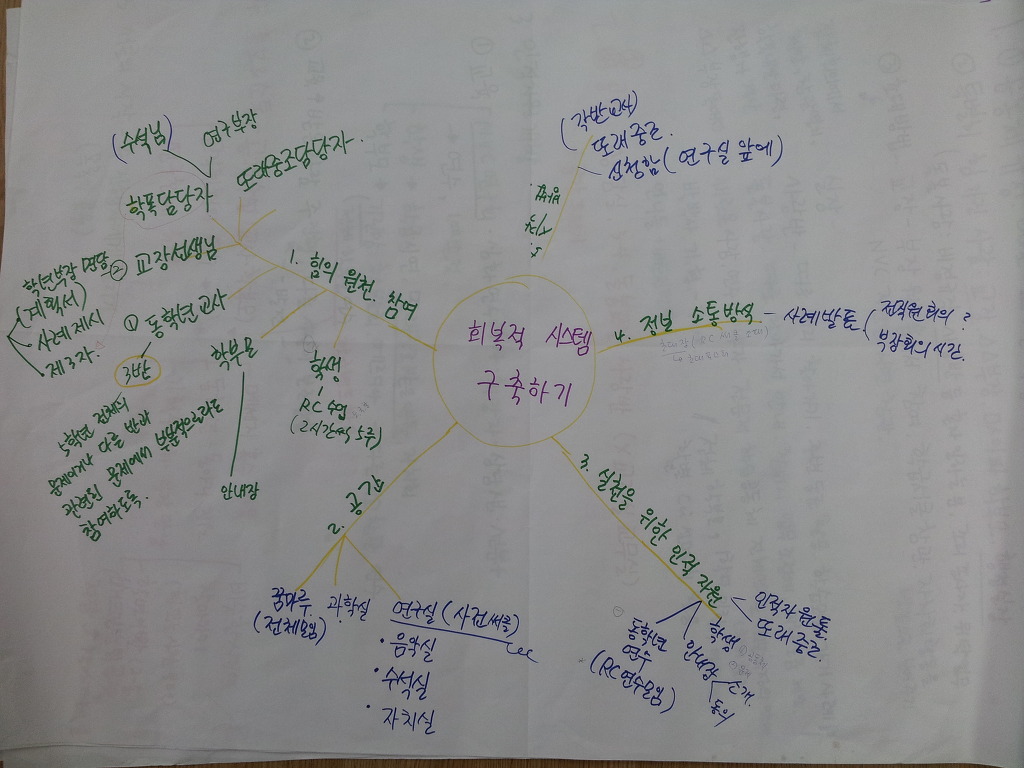 회복적 시스템
구축하기
1. 힘의 원천. 참여
(수석님)
연구부장
학폭담당자
또래중조담당자.
② 교장선생님
학년부장 면담
(계획서)
사례 제시
제3자.
① 동학년교사
3반
5학년 전체의
문제이거나 다른 반과
관련된 문제에서 부분적으로라도
참여하도록.
학부모
안내장
학생
RC 수업
(2시간씩 5주)
2. 공간
꿈마루
(전체모임)
과학실
연구실 (사전써클)
• 음악실
• 수석실
• 자치실
3. 실천을 위한 인적 자원
동학년
연수
(RC연수모임)
학생
안내장
소개.
동의
인적자원풀.
또래 중조.
4. 정보 소통방식
사례발표
전직원 회의 ?
부장회의 시간.
5. 시스템
(각반교사)
또래 중조.
신청함 (연구실 앞에)